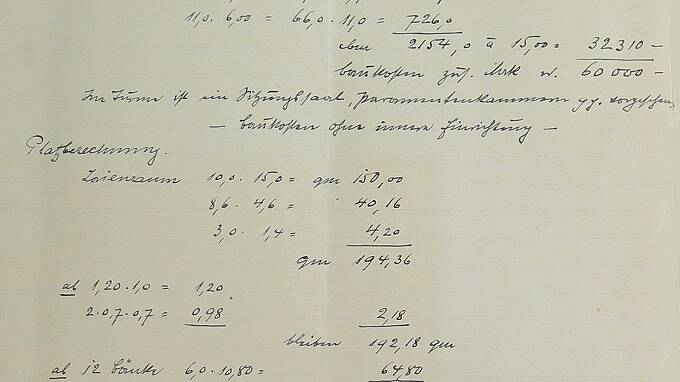 11,0 . 6,00 = 66,0 . 11,0 = 726,0
cbm 2154,0 à 15,00 = 32310 –
Baukosten zus. Mrk 60000 –
Im Turme ist ein Sitzungssaal, Paramentenkammern vorgesehen
– Baukosten ohne innere Einrichtung –
Platzberechnung.
Laienraum 10,0 . 15,0 = qm 150,00
8,6 . 4,6 = 40,16
3,0 . 1,4 = 4,20
qm 194,36
ab 1,20 . 1,0 = 1,20
2 . 0,7 . 0,7 = 0,98 2,18
bleiben 192,18 qm
ab 12 Bänke 6,0 . 10,80 = 64,80